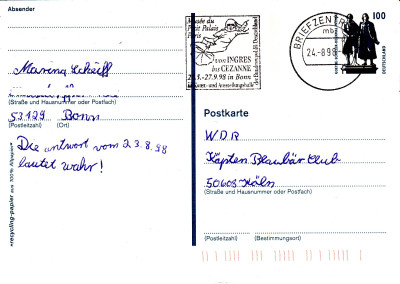 Absender
Marina Scheiff
(Straße und Hausnummer oder Postfach)
53129 Bonn
(Postleitzahl) (Ort)
Die antwort vom 23.8.98
lautet wahr!
recycling-papier aus 100% Altpapier
Musée du
Petit Palais
Paris
von INGRES
bis CEZANNE
-27.9.98 in Bonn
BRIEFZENTR
mb
24.-8.98
100
DEUTSCHLAND
Postkarte
WDR
Käpten Blaubär Club
50608 Köln
(Straße und Hausnummer oder Postfach)
(Postleitzahl) (Bestimmungsort)